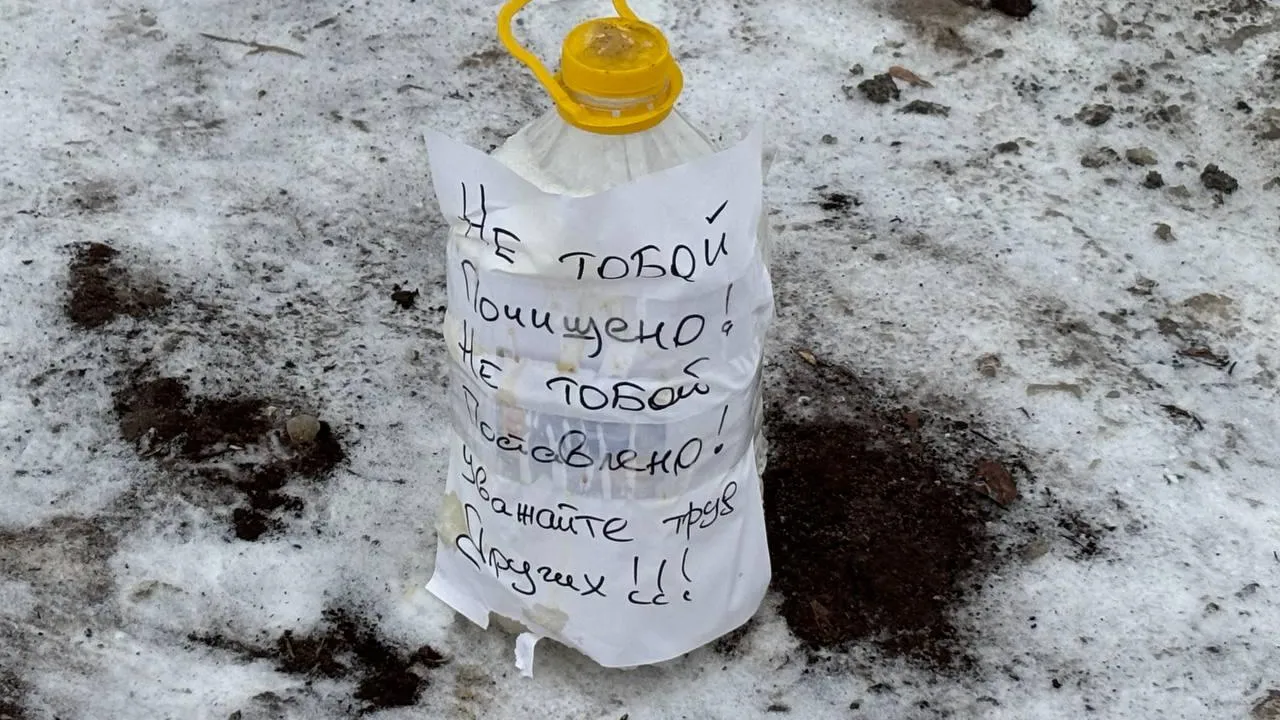 Не тобой
Почищено!
Не тобой
Поставлено!
уважайте труд
Других!!!